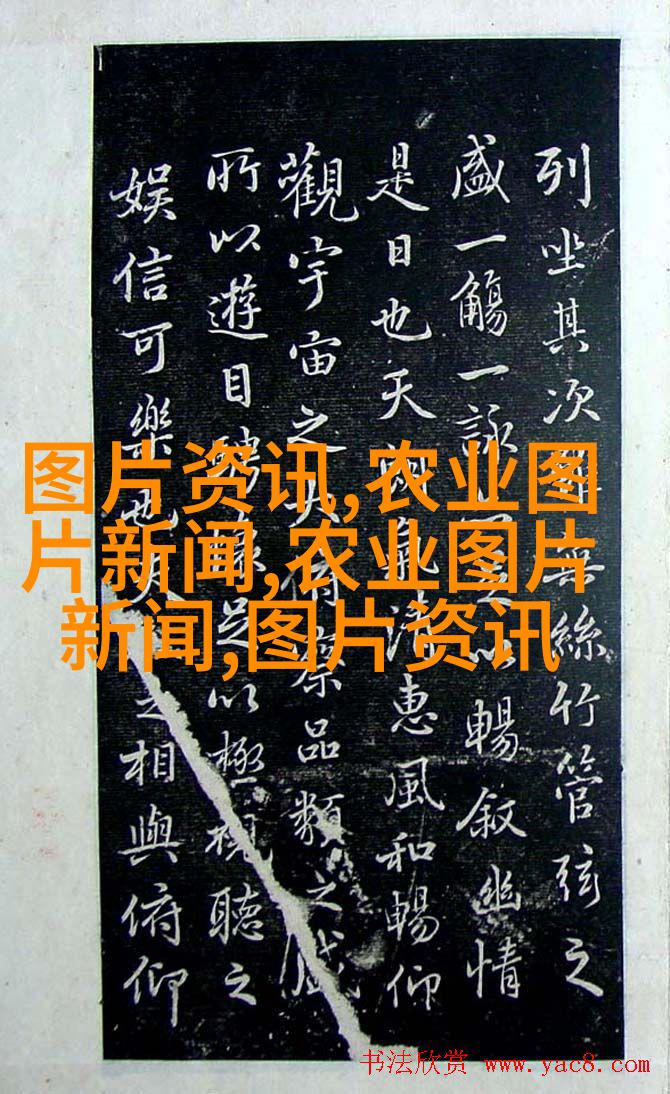 列坐其次無絲竹管弦之
盛一觴一詠以暢叙幽情
是日也天朗氣清惠風和暢仰
觀宇宙之大俯察品類之盛
所以遊目騁懷足以極視聽之
娱信可樂也夫之相與俯仰
图片资讯,农业图
片新闻,农业图片
新闻,图片资讯
书法欣赏 www.yac8.com